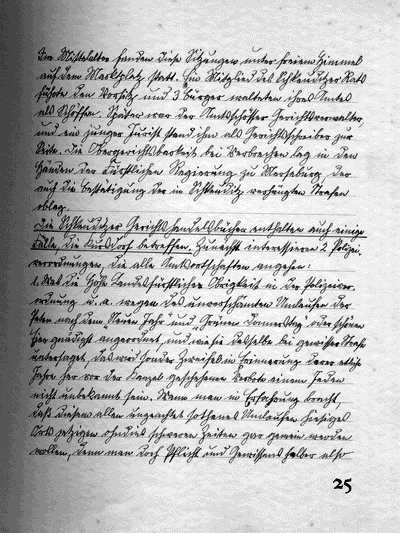 Im Mittelalter fanden diese Sitzungen unter freiem Himmel
auf dem Marktplatz statt. Ein Mitglied des Schkeuditzer Rats
führte den Vorsitz und 3 Bürger walteten ihres Amtes
als Schöffen. Später war der Amtsschösser Gerichtsverwalter
und ein junger Jurist stand ihm als Gerichtsschreiber zur
Seite. Die Obergerichtsbarkeit bei Verbrechen lag in den
Händen der Fürstlichen Regierung zu Merseburg, der
auch die Bestätigung der in Schkeuditz verhängten Strafen
oblag.
Die Schkeuditzer Gerichtshandelsbücher enthalten auch einige
Fälle, die betreffen. Zunächst interessieren 2 Polizei-
verordnungen, die alle Amtsortschaften angehen:
1. Was die Hohe Landesfürstliche Obrigkeit in der Polizeiver-
ordnung u. a. wegen des unverschämten Umlaufens der
Paten nach dem Neuen Jahr und "Grünen Donnerstag" oder schönen
gnädigst angeordnet, und wie sie dasselbe bei gewisser Strafe
untersaget, das wird sonder Zweifel in Erinnerung derer etliche
Jahre her von der Kanzel geschehenen Verbote einem Jeden
nicht unbekannt sein. Wenn man in Erfahrung bracht,
daß diesem allen ungeachtet solches Umlaufen hiesiges
Orts jetzigen ohndies schweren Zeiten gar gemein werden
wollen, denn man doch Pflicht und Gewissens halber also
25